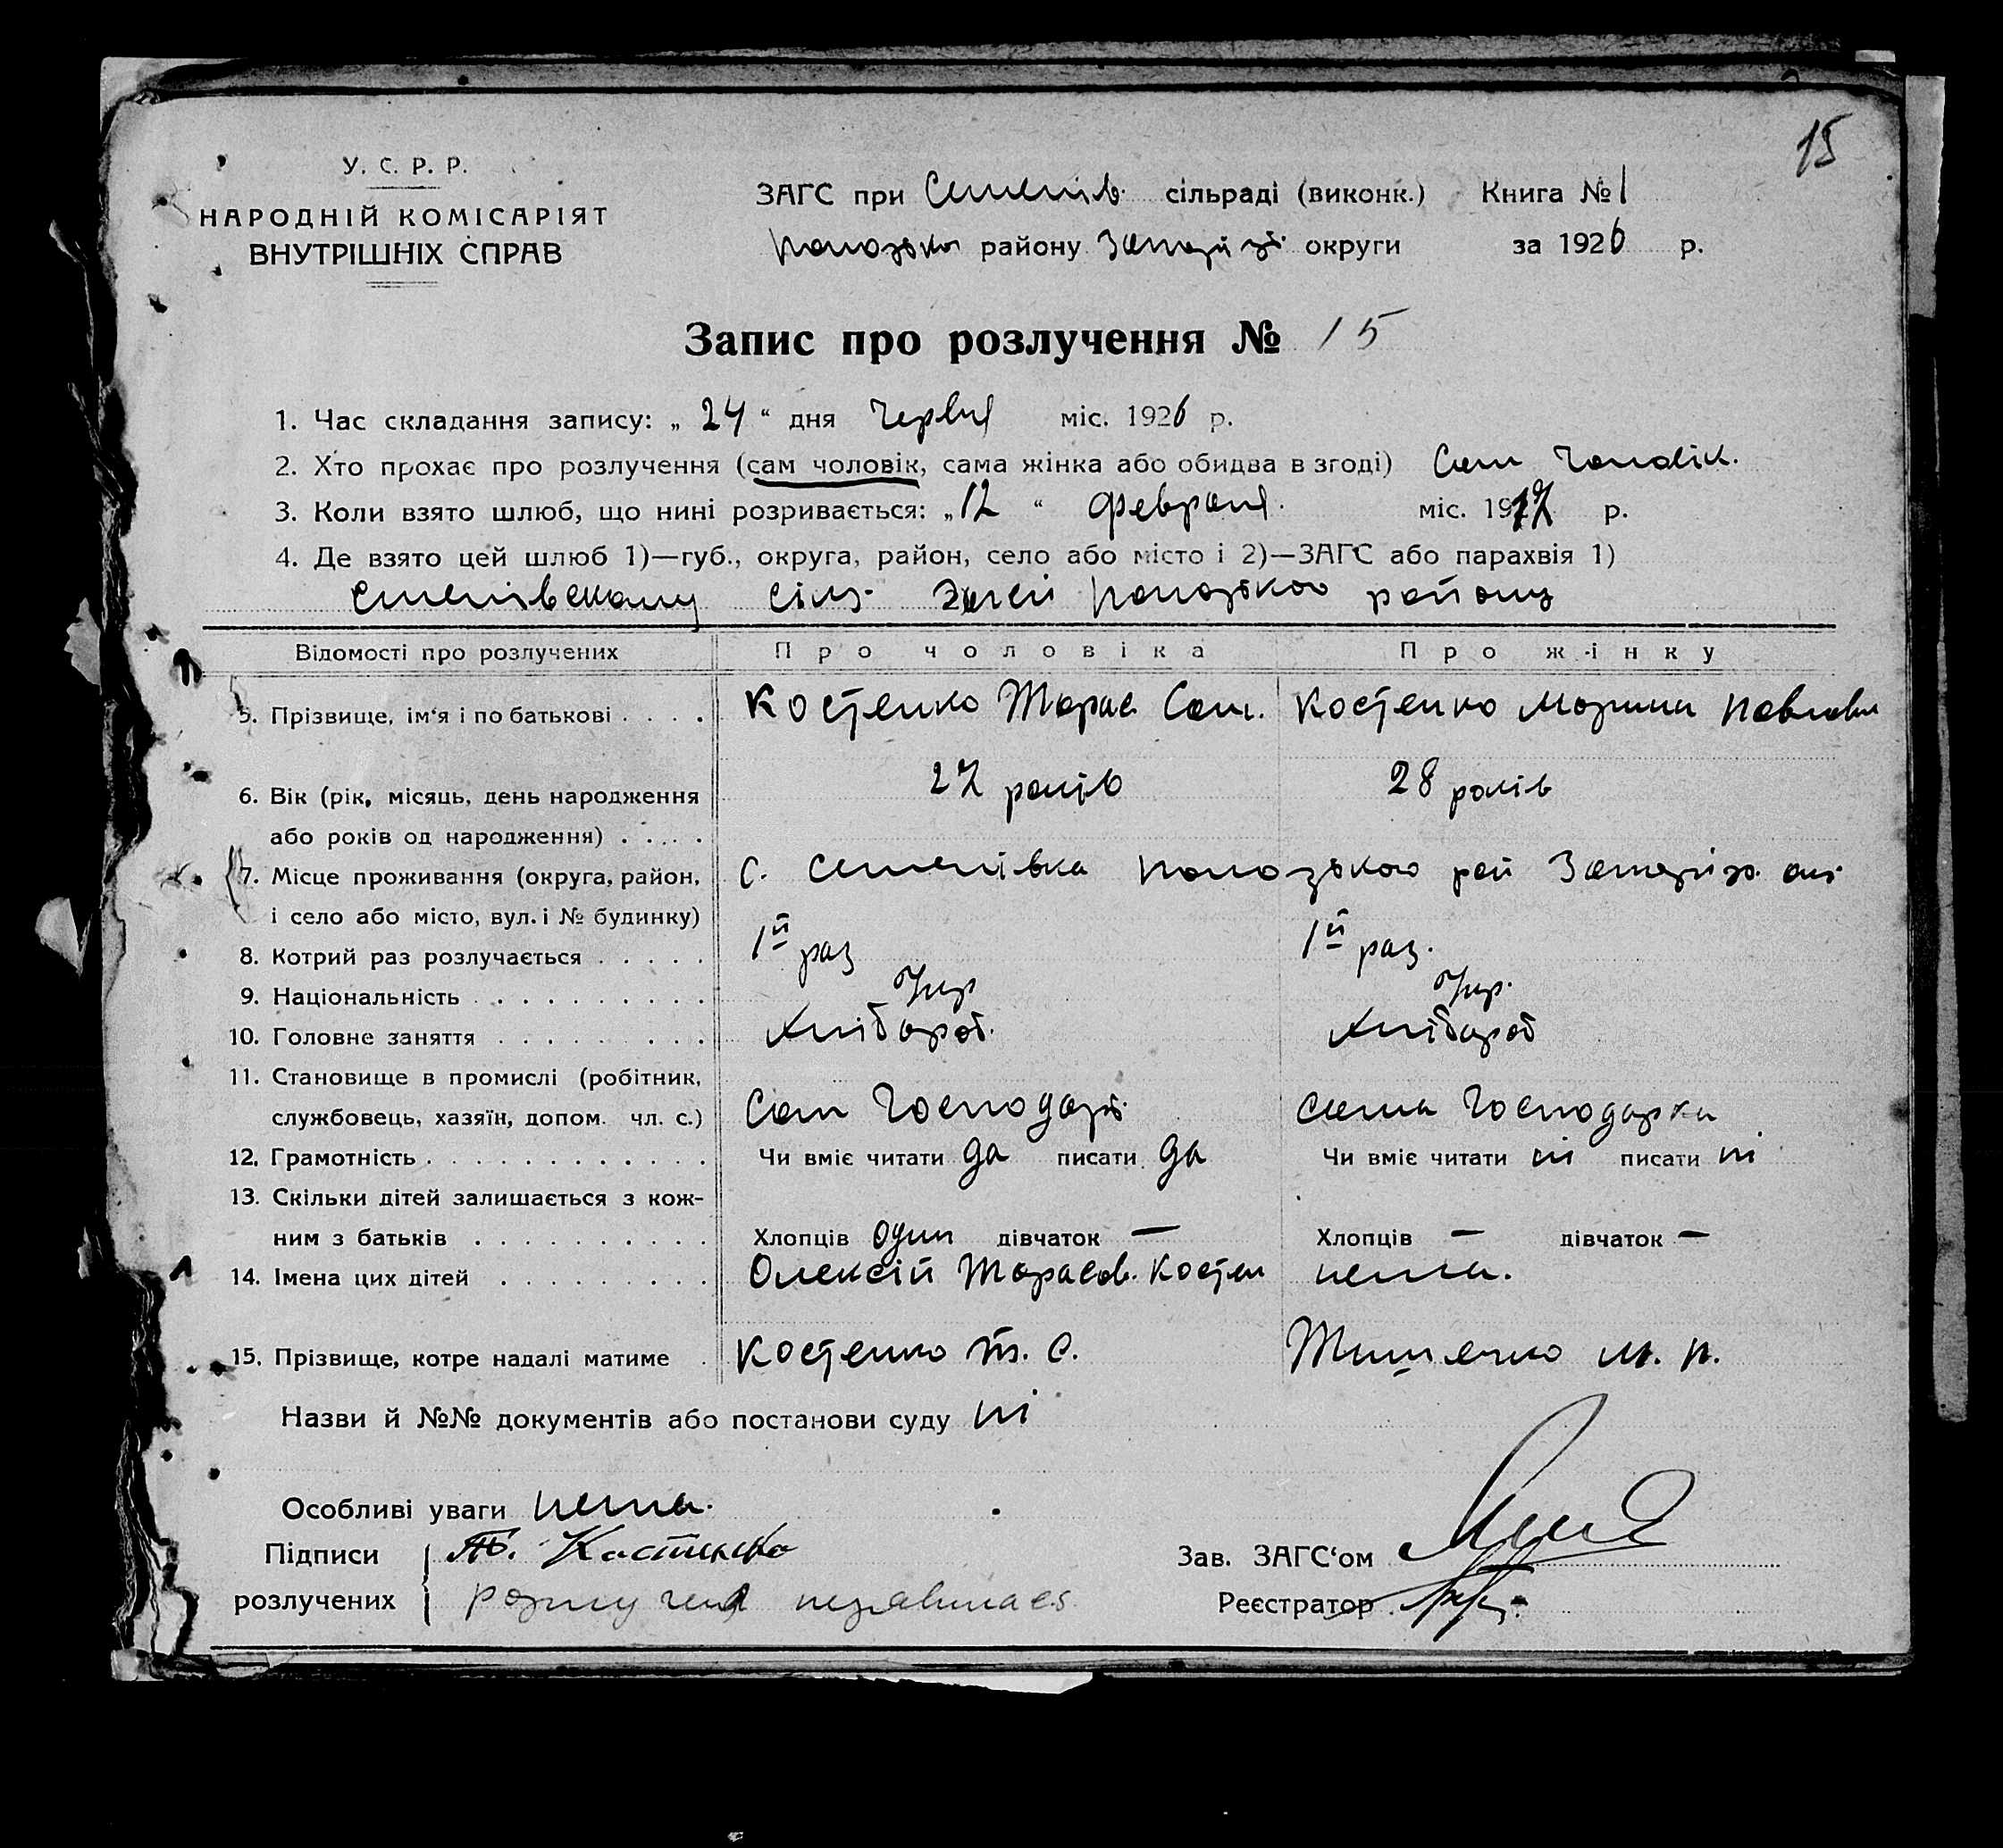 15
У. С. Р. Р.
НАРОДНІЙ КОМІСАРІЯТ
ВНУТРІШНІХ СПРАВ
ЗАГС при Семенів. сільраді (виконк.) Книга № 1
району округи за 1926 р.
Запис про розлучення № 15
1. Час складання запису: „ 24 “ дня Червня міс. 1926 р.
2. Хто прохає про розлучення (сам чоловік, сама жінка або обидва в згоді) Сам Чоловік.
3. Коли взято шлюб, що нині розривається: „ 12 “ Февраля. міс. 19 р.
4. Де взято цей шлюб 1)—губ., округа, район, село або місто і 2)—ЗАГС або парахвія 1)
району
Відомості про розлучених Про чоловіка Про жінку
5. Прізвище, ім‘я і по батькові . . . . Костенко Тарас Сам. Костенко Марина Павловн
6. Вік (рік, місяць, день народження 27 років 28 років
або років од народження) . . . . .
7. Місце проживання (округа, район, с. Семенівка рай
і село або місто, вул. і № будинку)
8. Котрий раз розлучається . . . . . 1й раз 1й раз.
9. Національність . . . . . . . . . . Укр Укр.
10. Головне заняття . . . . . . . . . Хлібороб. Хлібороб
11. Становище в промислі (робітник,
службовець, хазяїн, допом. чл. с.) Сам Господарь Сама Господарка
12. Грамотність . . . . . . . . . . . . Чи вміє читати да писати да Чи вміє читати ні писати ні
13. Скільки дітей залишається з кож-
ним з батьків . . . . . . . . . . Хлопців один дівчаток — Хлопців — дівчаток —
14. Імена цих дітей . . . . . . . . . Олексій Тарасов. Костен нема.
15. Прізвище, котре надалі матиме . Костенко Т. С. М. П.
Назви й №№ документів або постанови суду ні
Особливі уваги нема.
Підписи Т. Костенко Зав. ЗАГС‘ом
розлучених Розлучена Реєстратор